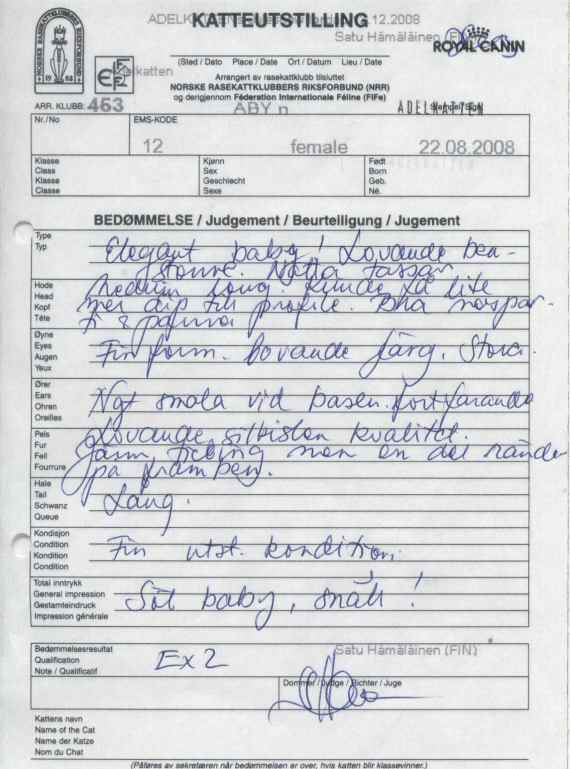 KATTEUTSTILLING
12.2008
Satu Hämäläinen (FIN)
ROYAL CANIN
NORSKE RASEKATTKLUBBERS RIKSFORBUND
1938
FIFe
(Sted / Dato Place / Date Ort / Datum Lieu / Date
Arrangert av rasekattklubb tilsluttet
NORSKE RASEKATTKLUBBERS RIKSFORBUND (NRR)
og derigjennom Féderation Internationale Féline (FIFe)
ARR. KLUBB: 463
ABY n
ADELKATTEN
Nr./No
EMS-KODE
12 female 22.08.2008
Klasse Kjønn Født
Class Sex Born
Klasse Geschlecht Geb.
Classe Sexe Né.
BEDØMMELSE / Judgement / Beurteiligung / Jugement
Type
Typ
Elegant baby! Lovande ben-
stomme. Nätta tassar.
Hode
Head
Kopf
Tête
Medium long. Kunde få lite
mer dip till profile. Bra nospar-
ti & panna
Øyne
Eyes
Augen
Yeux
Fin form. Lovande färg. Stora.
Ører
Ears
Ohren
Oreilles
Ngt smala vid basen. fortfarande
Pels
Fur
Fell
Fourrure
Lovande, silkislen kvalitet.
Jämn ticking men en del ränder
på framben.
Hale
Tail
Schwanz
Queue
Lang.
Kondisjon
Condition
Kondition
Condition
Fin utst. kondition.
Total inntrykk
General impression
Gestamteindruck
Impression générale
Söt baby, snäll!
Bedømmelsesresultat
Qualification
Note / Qualificatif
Ex 2
Satu Hämäläinen (FIN)
Dommer / Judge / Richter / Juge
Kattens navn
Name of the Cat
Name der Katze
Nom du Chat
(Påføres av sekretæren når bedømmelsen er over, hvis katten blir klassevinner.)